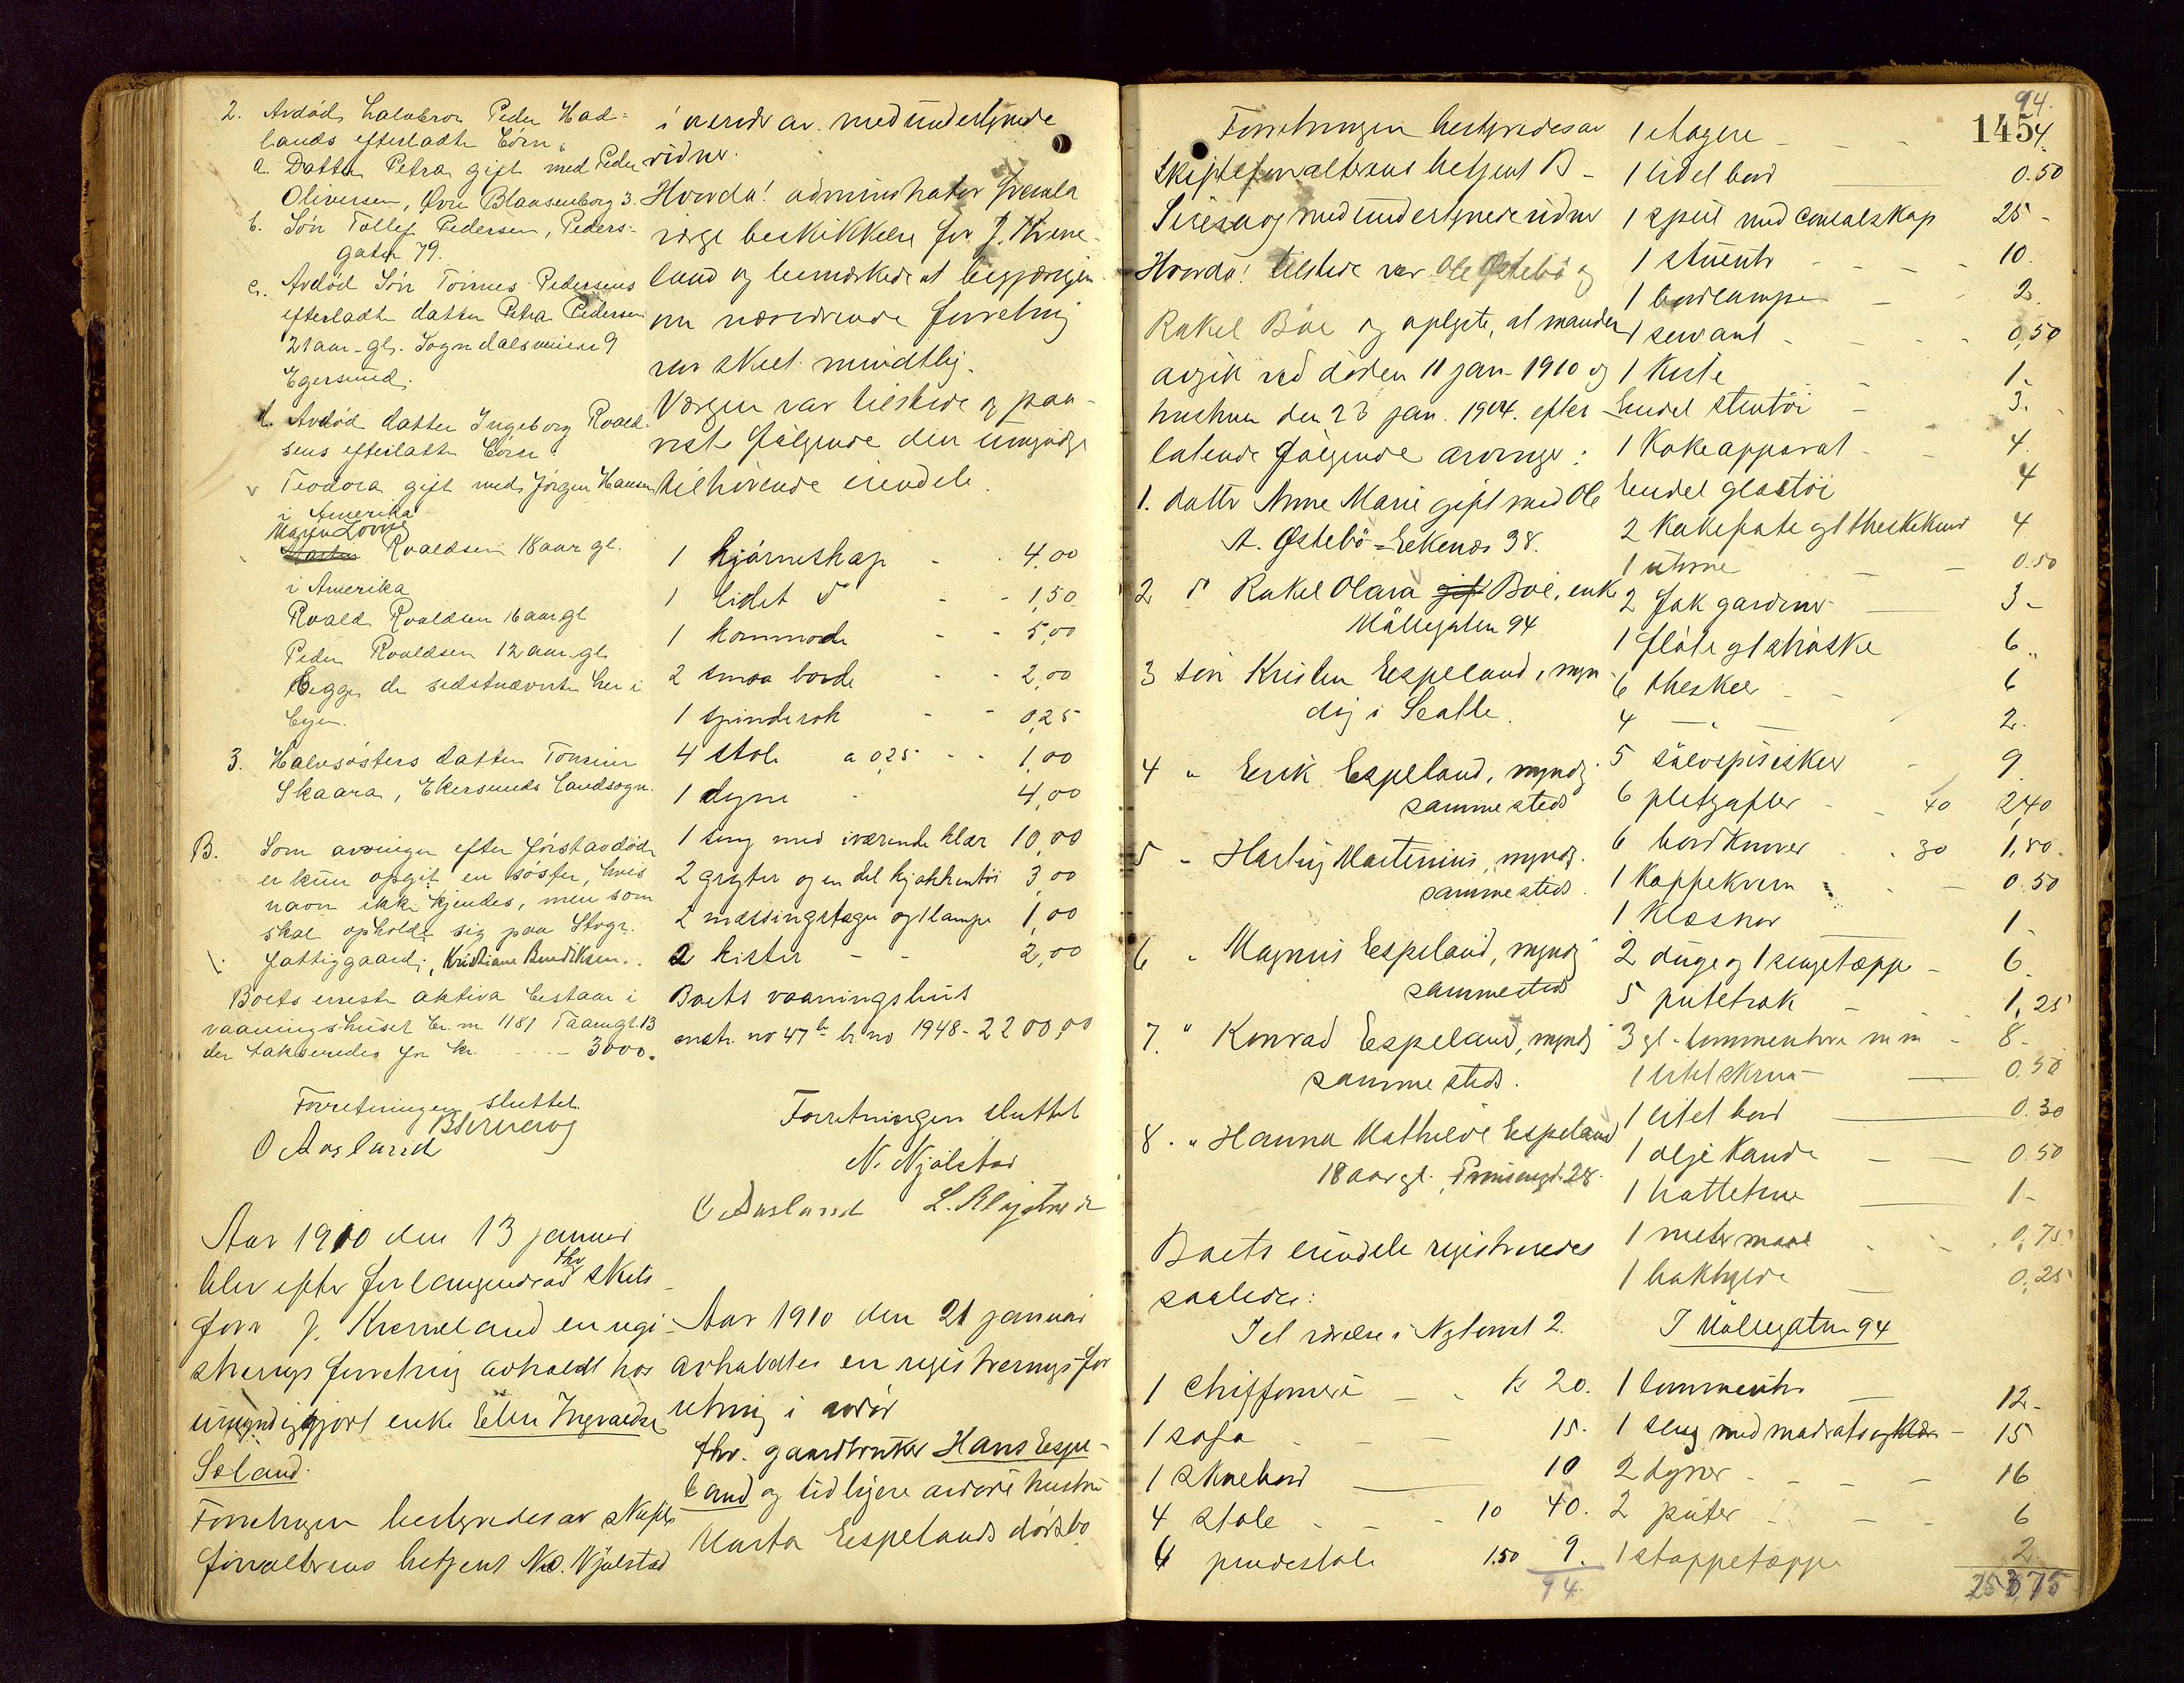 2. Avdöd halvbror Peder Had-
lands efterladte börn.
a. Datter Petra gift med Peder
Oliversen, Øvre Blaasenborg 3.
b. Sön Tollef Pedersen, Peders-
gaten 79.
c. Avdöd Sön Tönnes Pedersens
efterladte datter Petra Pedersen
21 aar gl. Sogndalsveien 9
Egersund.
d. Avdöd datter Ingeborg Roald-
sens efterladte börn:
Teodora gift med Jörgen Hansen
i Amerika
Roaldsen 18 aar gl.
i Amerika
Roald Roaldsen 16 aar gl
Peder Roaldsen 12 aar gl.
Begge de sidstnævnte her i
byen.
3. Halvsösters datter Tomine
Skaara, Ekersunds landsogn.
B. Som arvinger efter förstavdöde
er kun opgit en söster, hvis
navn ikke kjendes, men som
skal opholde sig paa Stvgr.
fattiggaard, Kristiane Bendiksen.
Boets eneste aktiva bestaar i
vaaningshuset br. nr. 1181 Taarngt. 13
der takseredes for kr. - - - - 3000.
Forretningen sluttet.
O Aasland
Aar 1910 den 13 januar
blev efter forlangende av thv skifte
forv J. Kverneland en regi-
strerings forretning avholdt hos
umyndiggjort enke Elen Ingvaldsen
Söland.
Forretningen bestyredes av skifte
forvalterens betjent N. Njölstad
i overvær av medundertegnede
vidner.
Hvorda! administrator fremla
værge beskikkelse for J. Kverne-
land og bemerkede at begjæringen
om nærværende forretning
var skeet mundtlig.
Værgen var tilstede og paa-
viste fölgende den umyndige
tilhörende eiendele.
1 hjörneskap - - 4,00
1 lidet do - - 1,50
1 kommode - - 5,00
2 smaa borde - - 2,00
1 spinderok - - 0,25
4 stole a 0,25 - - 1,00
1 dyne - 4,00
1 seng med iværende klær 10,00
2 gryter og en del kjökkentöi 3,00
2 messingstager og 1 lampe 1,00
2 kister - - 2,00
Boets vaaningshus
matr. no 47 b br no 1948 - 2200,00
Forretningen sluttet
N. Njölstad
O Aasland
Aar 1910 den 21 januar
avholdtes en registrerings for
retning i avdöd
fhv. gaardbruker Hans Espe-
land og tidligere avdöde hustru
Marta Espelands dödsbo.
94.
1454.
Forretningen bestyredes av
Skifteforvalterens betjent B
og medundertegnede vidner
Hvorda! tilstede var Ole Østebö og
Rakel Böe og oplyste, at manden
avgik ved döden 11 jan. 1910 og
hustruen den 23 jan. 1904. efter
latende fölgende arvinger:
1. datter Anne Marie gift med Ole
A. Østebö - Eekenæs 38.
2 do Rakel Olava gift Böe, enke
Möllegaten 94
3 sön Kristen Espeland, myn-
dig i Seatle.
4 " Erik Espeland, myndig
sammesteds
5 " Hartvig Martinius, myndig
sammesteds.
6 " Magnus Espeland, myndig
sammesteds
7. " Konrad Espeland, myndig
sammesteds.
8. " Hanna Mathilde Espeland
18 aar gl. 28.
Boets eiendele registreredes
saaledes:
I et værelse i Nytorvet 2.
1 chiffoniere - - kr 20.
1 sofa - - - 15.
1 skuebord 10
4 stole - - - 10 40.
6 pindestole 1.50 9.
94.
1 etagere - - -
1 lidet bord 0.50
1 speil med consolskap 25 -
1 stueuhr - - - - 10.
1 bordlampe - - 2.
1 servant - - - 0,50
1 kiste - 1 -
Endel stentöi - 3.
1 kokeapparat - - 4.
Endel glastöi 4
2 kakefate og 1 theskekurv 4
1 - - 0.50
2 fak gardiner 3 -
1 flöte og 1 ströske 6 "
6 theskeer - - 6
4 - " - 2.
5 sölvspiseskeer - 9.
6 pletgafler - - 40 2,40
6 bordkniver - - 30 1,80
1 kaffekvern - - 0.50
1 klæsnor 1.
2 duge og 1 sengetæppe - 6.
5 putetræk - 1,25
3 gl. m m - 8 -
1 litet skrin 0.50
1 litet bord 0.30
1 olje kande - - 0.50
1 1 -
1 metermaal - - 0,75
1 bakhylde - 0,25
I Möllegaten 94
1 lommeuhr 12 -
1 seng med madrats og klær - 15
2 dyner - - - - 16
2 puter - - - 6
1 stoppetæppe 2
253,75